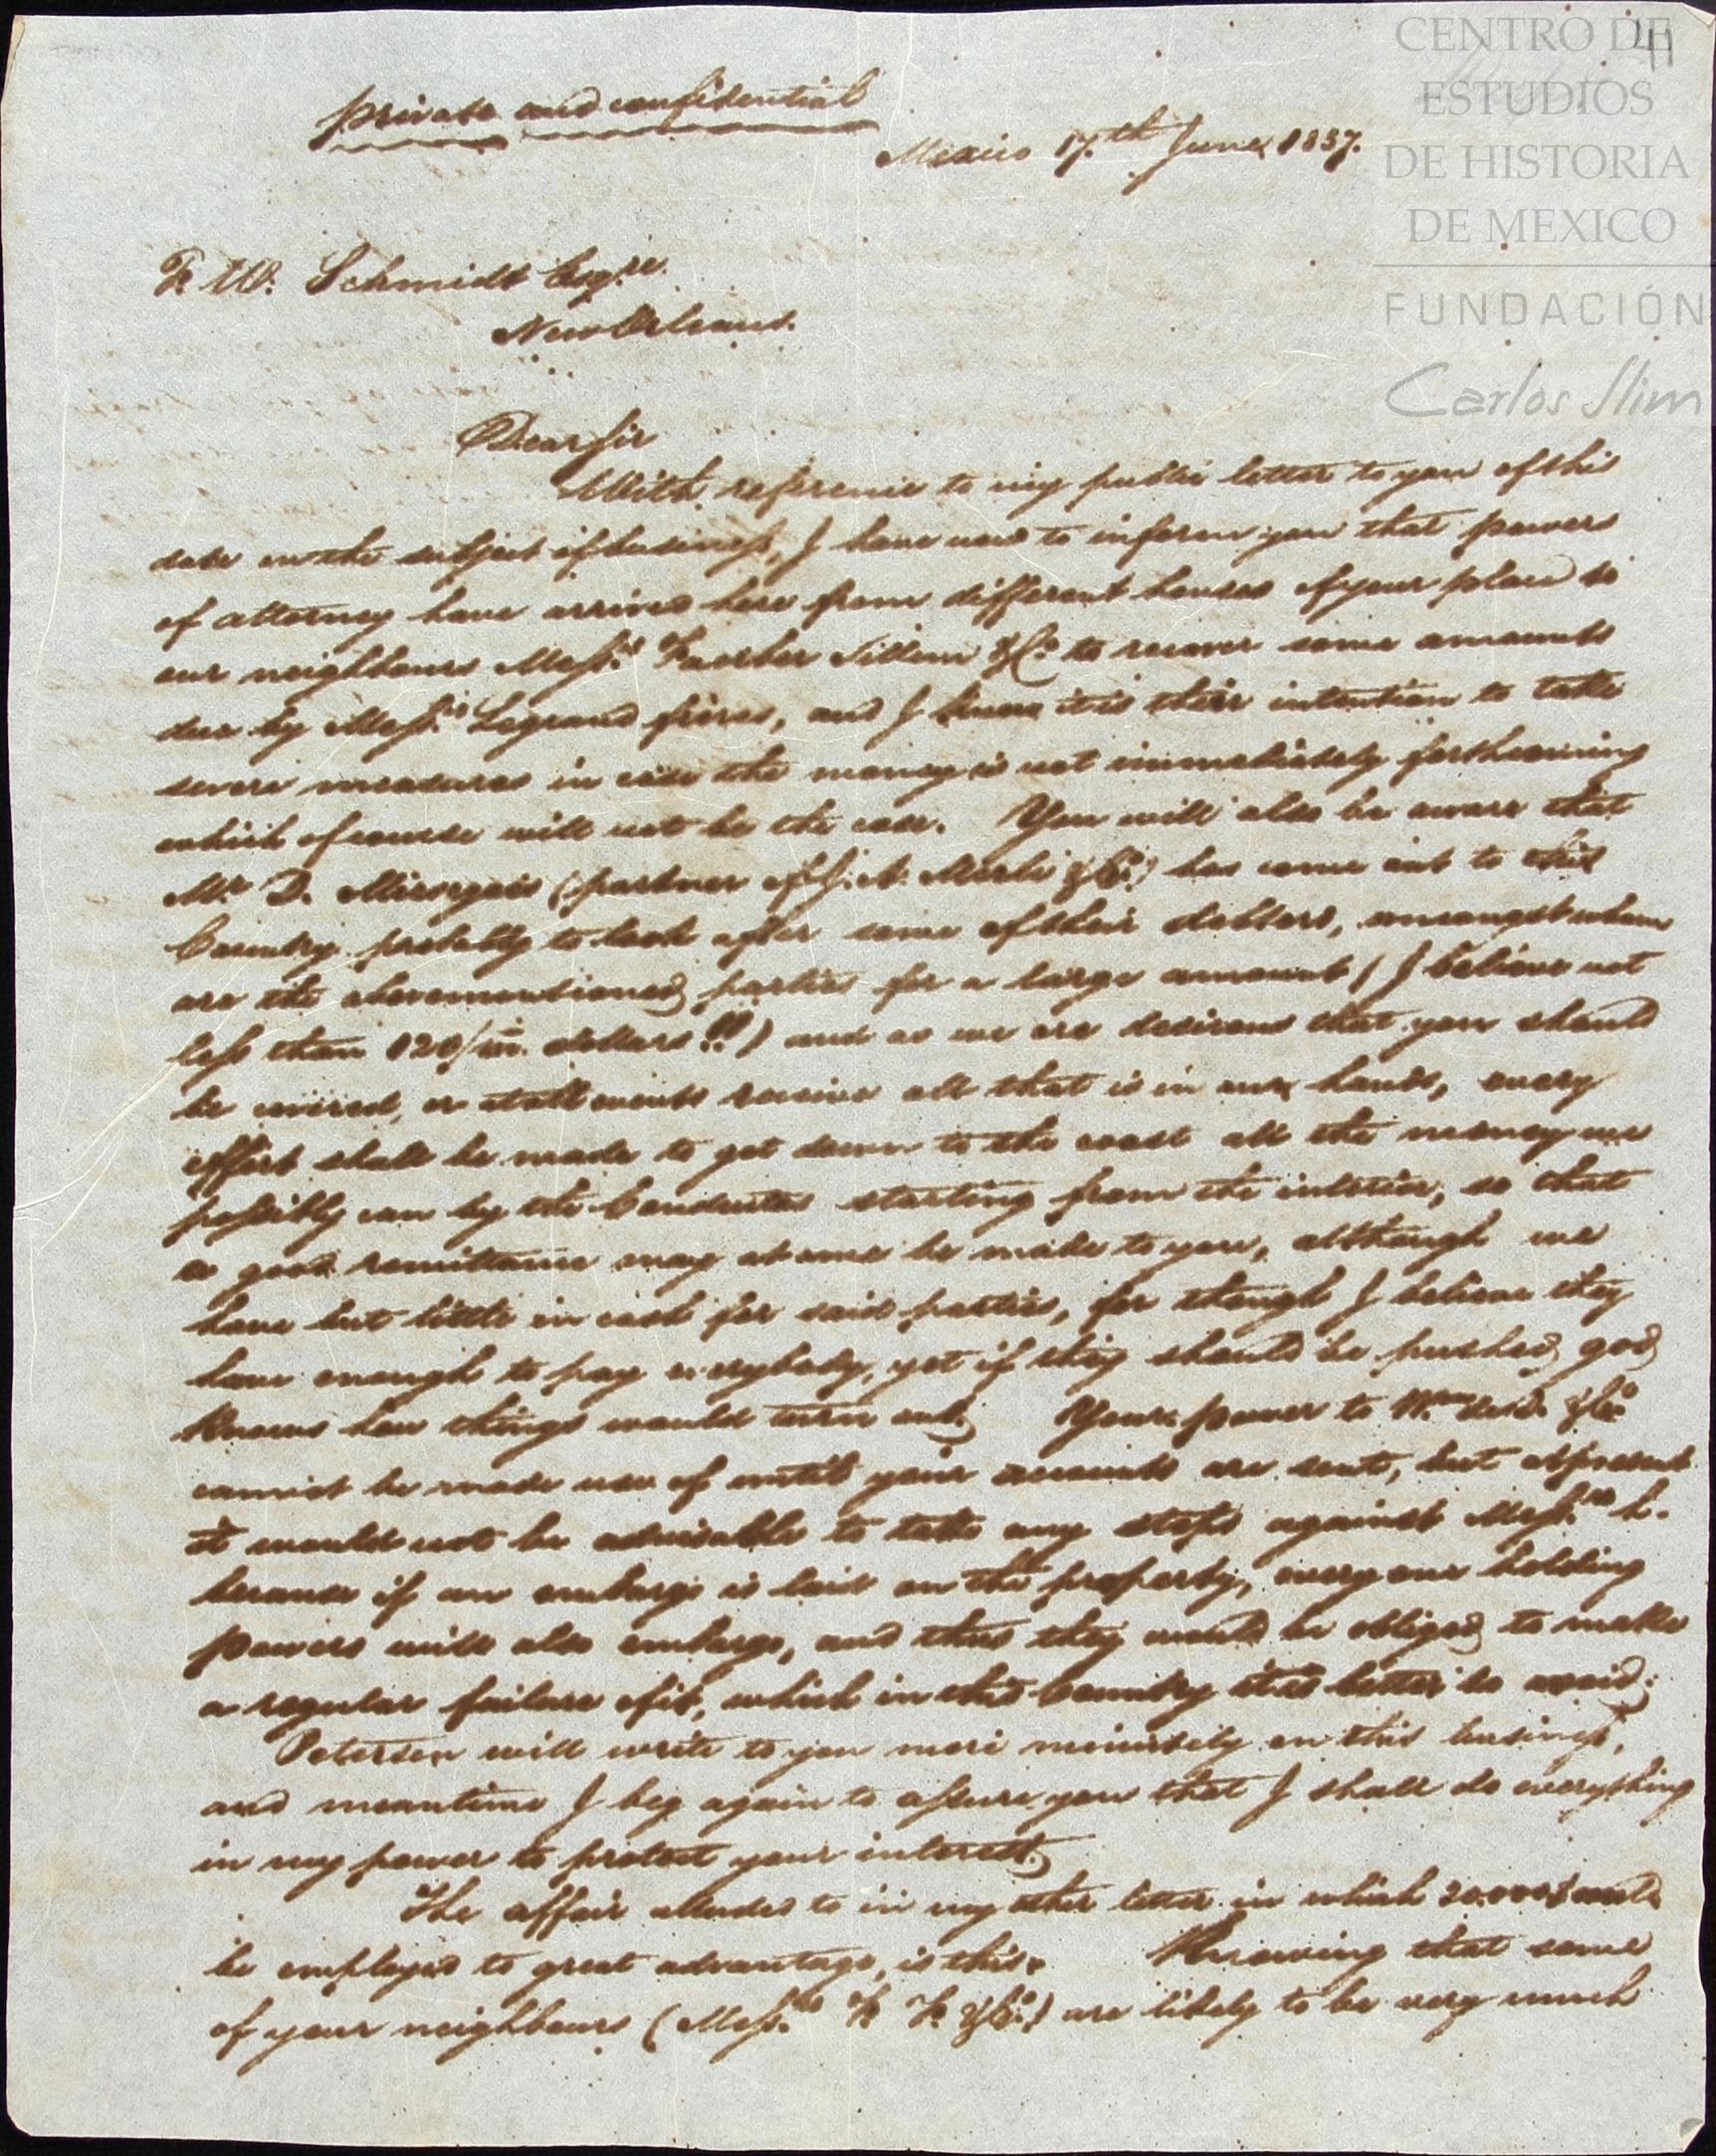 41
CENTRO DE
ESTUDIOS
DE HISTORIA
DE MEXICO
FUNDACIÓN
Carlos Slim
private and confidential
Mexico 17th June 1837.
F. W. Schmidt Esqre.
New Orleans.
Dear Sir
With reference to my public letter to you of this
date on the subject of business, I have now to inform you that powers
of attorney have arrived here from different houses of your place to
our neighbours Messrs. Faerber Sillem & Co. to recover some amounts
due by Messrs. Legrand frères, and I know it is their intention to take
severe measures in case the money is not immediately forthcoming
which of course will not be the case. You will also be aware that
Mr D. (partner of J. A. Merle & Co.) has come out to this
Country probably to look after some of their debtors, amongst whom
are the abovementioned parties for a large amount (I believe not
less than 120/m. dollars!!) and as we are desirous that you should
be covered, or at all events receive all that is in our hands, every
effort shall be made to get down to the coast all the money we
possibly can by the Conductas starting from the interior, so that
a good remittance may at once be made to you, although we
have but little in cash for said parties, for though I believe they
have enough to pay everybody, yet if they should be pushed, god
knows how things would turn out. Your power to Wm & Co.
cannot be made use of until your accounts are sent, but at present
it would not be advisable to take any steps against Messrs L.
because if an embargo is laid on the property, every one holding
powers will also embargo, and thus they would be obliged to make
a regular failure of it, which in this Country it is better to avoid.
Petersen will write to you more minutely on this business,
and meantime I beg again to assure you that I shall do everything
in my power to protect your interest.
The affair alluded to in my other letter in which 20.000$ could
be employed to great advantage, is this. Knowing that some
of your neighbours (Messrs F. F. & Co.) are likely to be very much